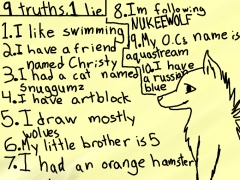 9 truths, 1 lie
1. I like swimming
2. I have a friend
named Christy
3. I had a cat named
Snuggumz
4. I have artblock
5. I draw mostly
wolves
6. My little brother is 5
7. I had an orange hamster
8. Im following
NUKEEWOLF
9. My O.Cs name is
aquastream
10. I have
a russian
blue